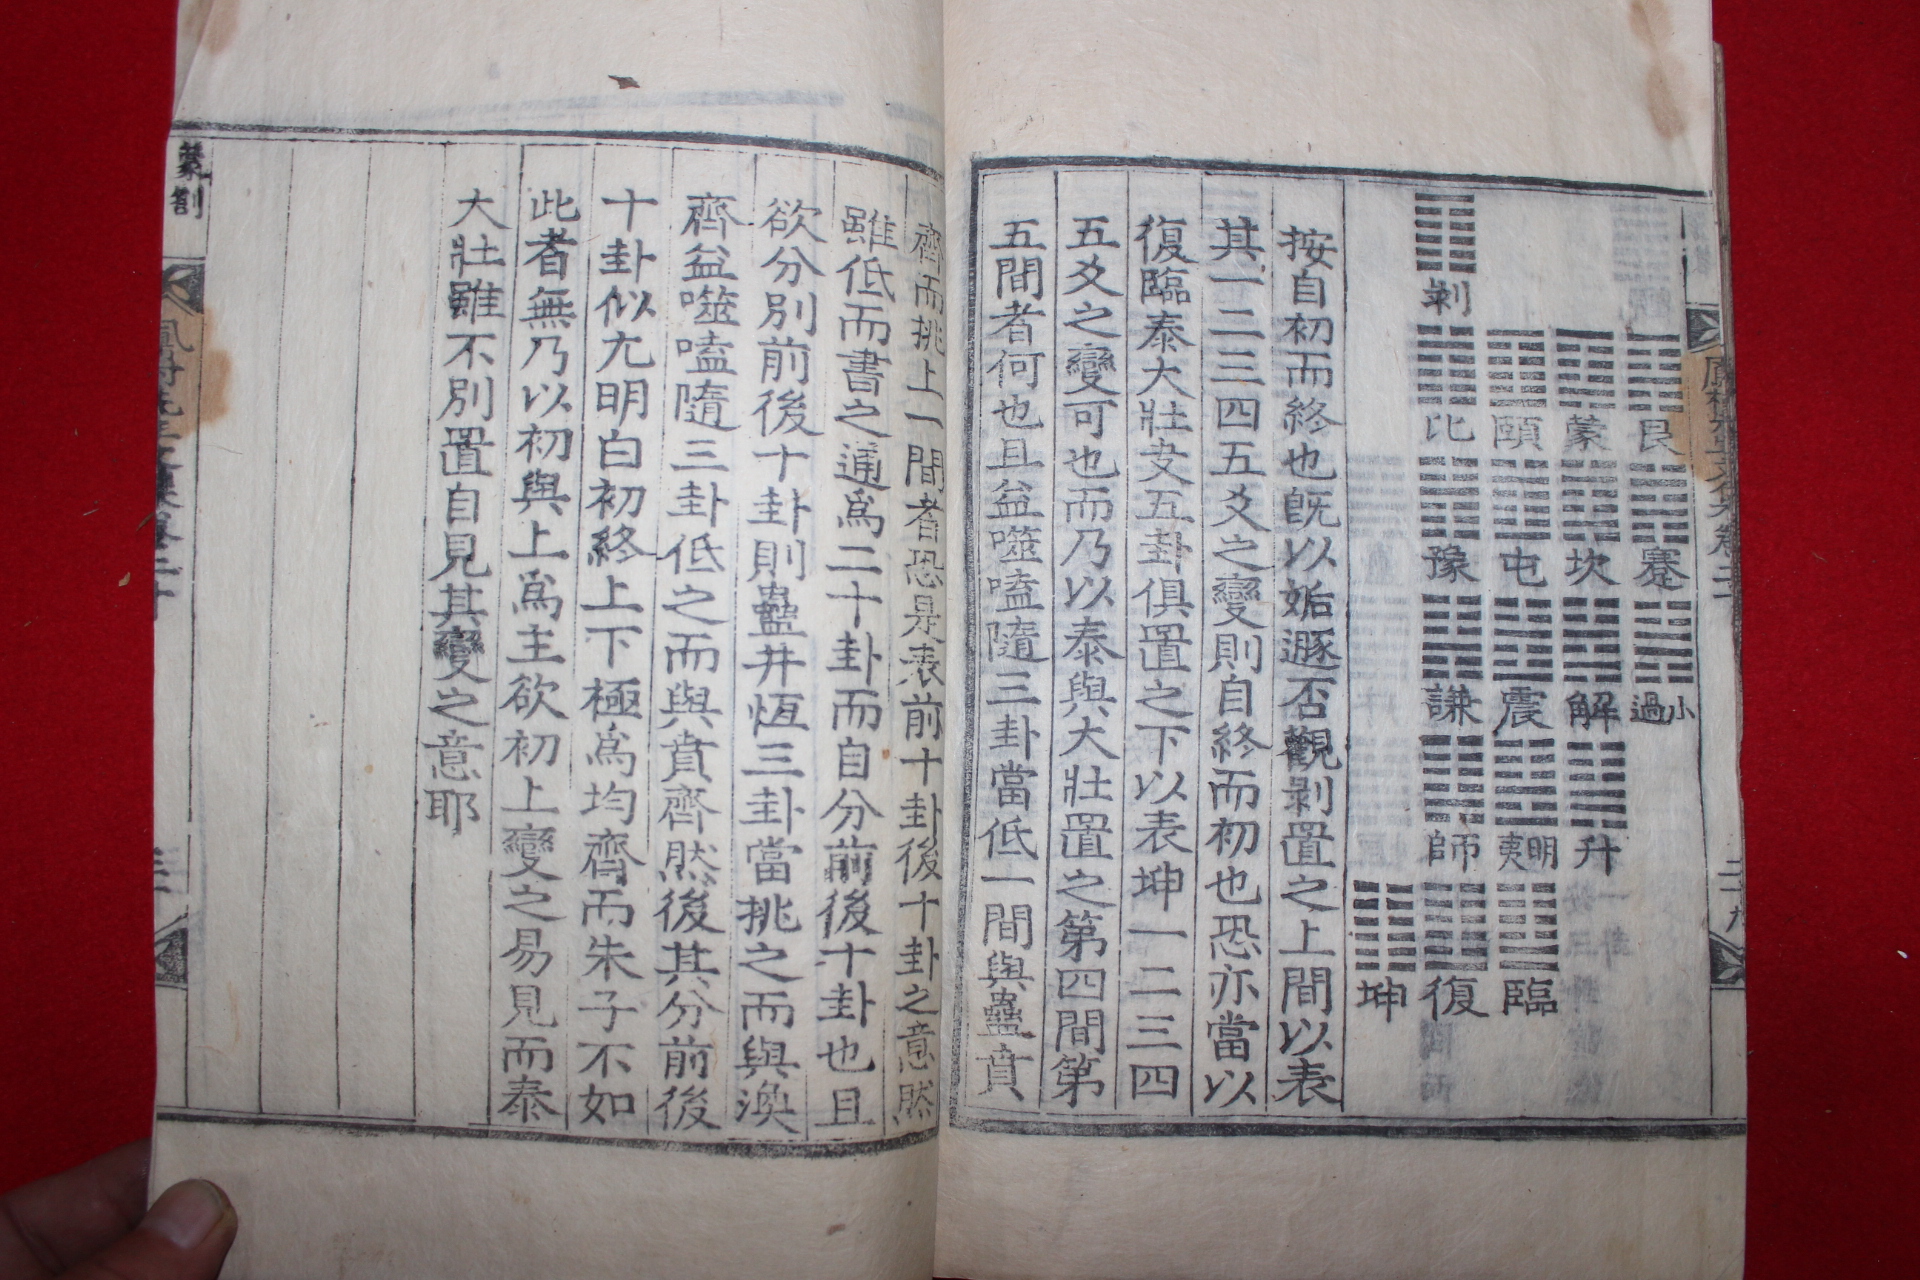 艮 蹇 小過
蒙 坎 解 升
頤 屯 震 明夷 臨
剝 比 豫 謙 師 復
坤
按自初而終也旣以姤遯否觀剝置之上間以表
其一二三四五爻之變則自終而初也恐亦當以
復臨泰大壯夬五卦俱置之下以表坤一二三四
五爻之變可也而乃以泰與大壯置之第四間第
五間者何也且益噬嗑隨三卦當低一間與蠱賁
齊而挑上一間者恐是表前十卦後十卦之意然
雖低而書之通爲二十卦而自分前後十卦也且
欲分別前後十卦則蠱井恆三卦當挑之而與渙
齊益噬嗑隨三卦低之而與賁齊然後其分前後
十卦似尤明白初終上下極爲均齊而朱子不如
此者無乃以初與上爲主欲初上變之易見而泰
大壯雖不別置自見其變之意耶
篆劄